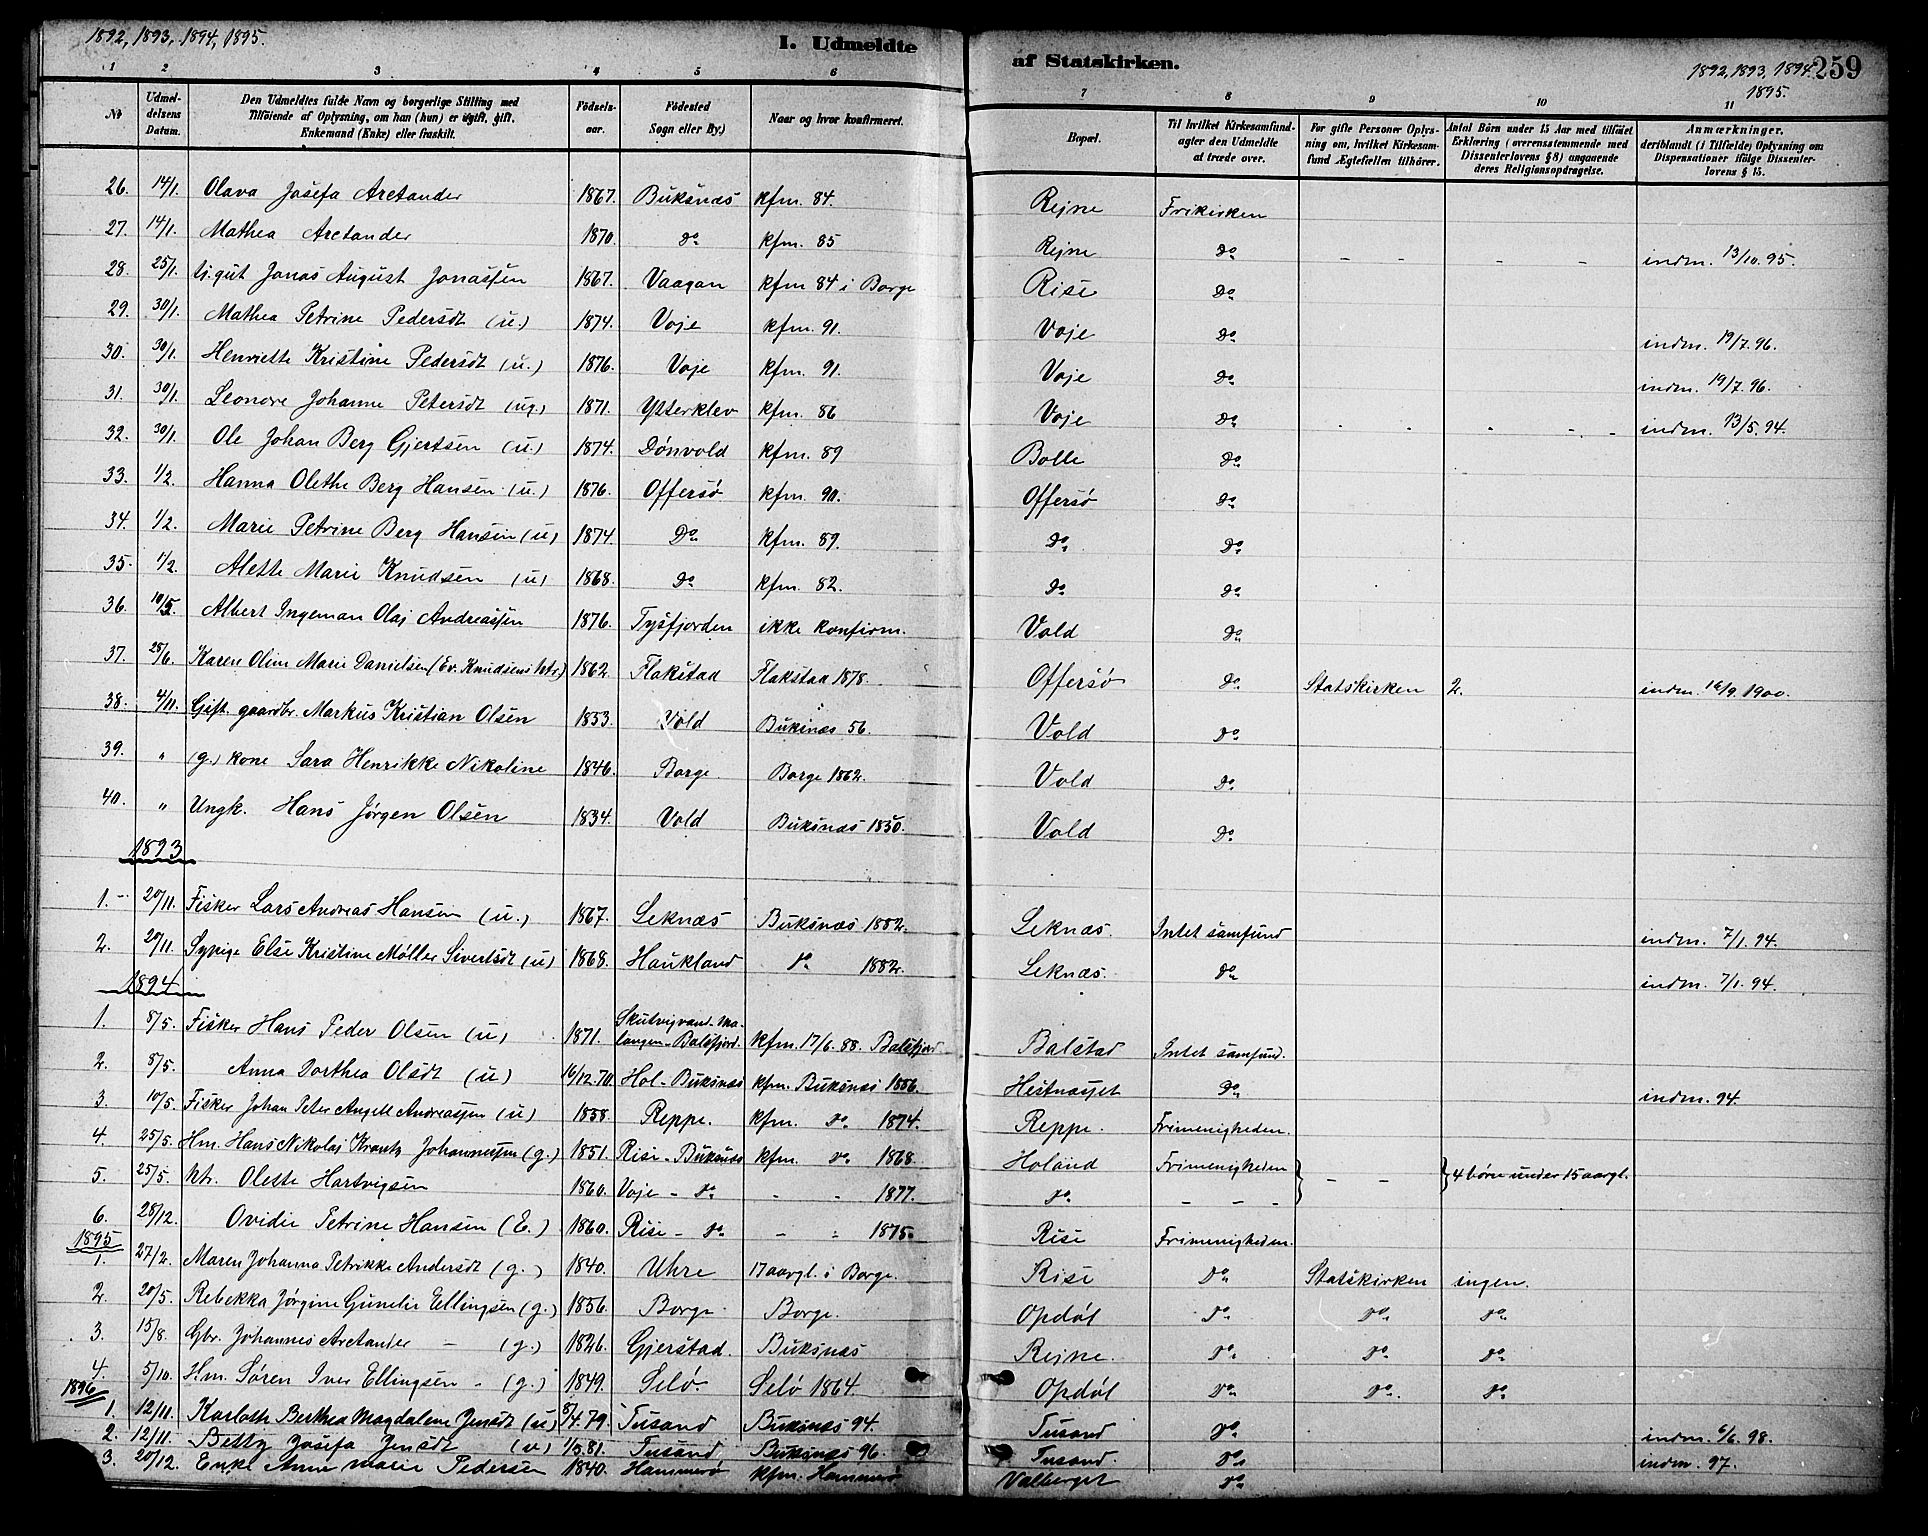 1892, 1893, 1894, 1895.
I. Udmeldte af Statskirken.
1892, 1893, 1894 259
1895.
1 2 3 4 5 6 7 8 9 10 11
No | Udmeldelsens Datum. | Den Udmeldtes fulde Navn og borgerlige Stilling med Tilföiende af Oplysning, om han (hun) er ugift, gift, Enkemand (Enke) eller fraskilt. | Födselsaar. | Födested Sogn eller By.) | Naar og hvor konfirmeret. | Bopæl. | Til hvilket Kirkesamfund agter den Udmeldte at træde over. | For gifte Personer Oplysning om, hvilket Kirkesamfund Ægtefællen tilhörer. | Antal Börn under 15 Aar med tilföiet Erklæring (overensstemmende med Dissenterlovens § 8) angaaende deres Religionsopdragelse. | Anmærkninger, deriblandt (i Tilfælde) Oplysning om Dispensationer ifölge Dissenterlovens § 15.
26. 14/1. Olava Josefa Aretander 1867. Buksnæs kfm. 84. Rejne Frikirken
27. 14/1. Mathea Aretander 1870. do kfm. 85 Rejne do - - - - indm. 13/10.95.
28. 25/1. Ug. gut Jonas August Jonassen 1867. Vaagan kfm 84 i Borge Rise do
29. 30/1. Mathea Petrine Pedersdt (u.) 1874. Voje kfm. 91. Voje do indm. 19/7.96.
30. 30/1. Henriette Kristine Pedersdt (u.) 1876. Voje kfm. 91. Voje do indm. 19/7.96.
31. 30/1. Leonore Johanne Petersdt (ug.) 1871. Ytterklev kfm. 86 Voje do - - - - - indm. 13/5.94.
32. 30/1. Ole Johan Berg Gjertsen (u.) 1874. Dönvold kfm. 89 Bolle do
33. 1/2. Hanna Olethe Berg Hansen (u.) 1876. Offersö kfm. 90. Offersö do
34. 1/2. Marie Petrine Berg Hansen (u) 1874. Do kfm. 89. do do
35. 1/2. Alette Marie Knudsen (u) 1868. do kfm. 82. do do
36. 10/5. Albert Ingeman Olaj Andreassen 1876. Tysfjorden ikke konfirm. Vold do
37. 28/6. Karen Oline Marie Danielsen (Ev. Knudsens ktr.) 1862. Flakstad Flakstad 1878. Offersö do Statskirken 2. indm. 16/9 1900.
38. 4/11. Gift. gaardbr. Markus Kristian Olsen 1833. Vold Buksnæs 56. Vold do
39. " (g.) kone Sara Henrikke Nikoline 1846. Borge. Borge 1862. Vold do
40. " Ungk. Hans Jörgen Olsen 1834. Vold Buksnæs 1850. Vold do
1893
1. 20/11. Fisker Lars Andreas Hansen (u.) 1867. Leknæs Buksnæs 1882. Leknæs. Intet samfund indm. 7/1.94.
2. 20/11. Sypige Else Kristine Möller Sivertsdt (u) 1868. Haukland do 1882. Leknæs. do indm. 7/1.94.
1894
1. 8/5. Fisker Hans Peder Olsen (u) 1871. Skutvigvand-Malangen-Balsfjord. kfm. 17/6.88. Balsfjord Balstad Intet samfund.
2. 8/5. Anna Dorthea Olsdt (u) 16/12.70. Hol-Buksnæs kfm. Buksnæs 1886. Hestnæsset do indm. 94.
3. 10/5. Fisker Johan Peter Angell Andreassen (u) 1858. Reppe. kfm. do 1874. Reppe. Frimenigheden.
4. 25/5. Hm. Hans Nikolaj Krantz Johannessen (g.) 1851. Rise-Buksnæs kfm. do 1868. Holand Frimenigheden - - 4 børn under 15 aargl.
5. 25/5. ktr. Olette Hartvigsen 1860. Voje - do - - 1877. do - - -
6. 28/12. Ovidie Petrine Hansen (E.) 1860. Rise - do - - 1875. Rise Frimenigheden.
1895
1. 27/2. Maren Johanna Petrikke Andersdt (g.) 1840. Uhre 17 aargl. i Borge. Rise do Statskirken ingen.
2. 20/5. Rebekka Jörgine Gunelie Ellingsen (g.) 1856. Borge. Borge. Opdöl do do do
3. 15/8. Gbr. Johannes Aretander - (g.) 1826. Gjerstad. Buksnæs Rejne. do do do
4. 5/10. Hm. Sören Iver Ellingsen - (g.) 1849. Selö. Selö 1864. Opdöl do do do
1896
1. 12/11. Karloth Berthea Magdalene Jensdt (u) 8/4.79. Tusand Buksnæs 94. Tusand do indm. 6/6.98.
2. 12/11. Betty Josefa Jensdt (u) 1/3.81. Tusand Buksnæs 96. Tusand. do indm. 97.
3. 20/12. Enke Anne Marie Pedersen 1840. Hammerö kfm. Hammerö. Valberget do